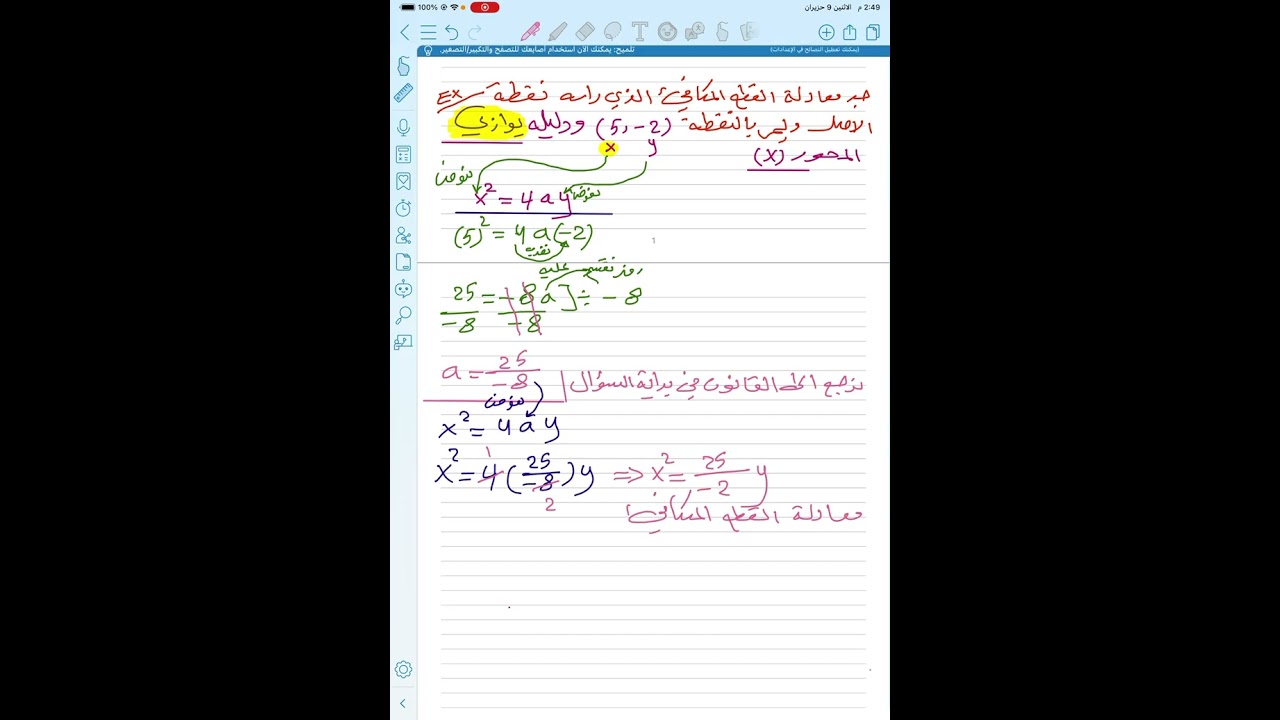 2:49 م الاثنين 9 حزيران
100%
تلميح: يمكنك الآن استخدام أصابعك للتصفح والتكبير/التصغير. (يمكنك تعطيل النصائح في الإعدادات)
Ex جد معادلة القطع المكافئ الذي راسه نقطة
الاصل ويمر بالنقطة (5,-2) ودليله يوازي
المحور (X)
x y
نعوض
x² = 4ay نعوض
(5)² = 4a(-2)
1
نضرب
نقسم عليه
25/-8 = -8a/-8 ] ÷ -8
a = 25/-8 نرجع الى القانون في بداية السؤال
نعوض
x² = 4ay
x² = 4(25/-8)y ⇒ x² = 25/-2 y
1
2
معادلة القطع المكافئ